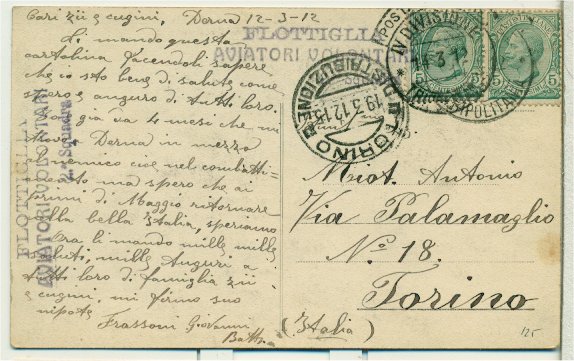 Cari zii e cugini, Derna 12-3-12
Li mando questa
cartolina facendoli sapere
che io sto bene di salute come
spero e auguro di tutti loro.
già va 4 mesi che mi
trovo a Derna in mezzo
al nemico cioè nel combatti=
mento ma spero che ai
primi di Maggio ritornare
alla bella Italia, speriamo
Ora li mando mille mille
saluti, mille Auguri a
tutti loro di famiglia zii
e cugini, mi firmo suo
nipote
Frassoni Giovanni
Batt.
FLOTTIGLIA
AVIATORI VOLONTARI
FLOTTIGLIA
AVIATORI VOLONTARI
2.a Squadra
IV DIVISIONE
TORINO
DISTRIBUZIONE
19.3.12.15
5
5
Miot. Antonio
Via Palamaglio
No. 18.
Torino
(Italia)
125